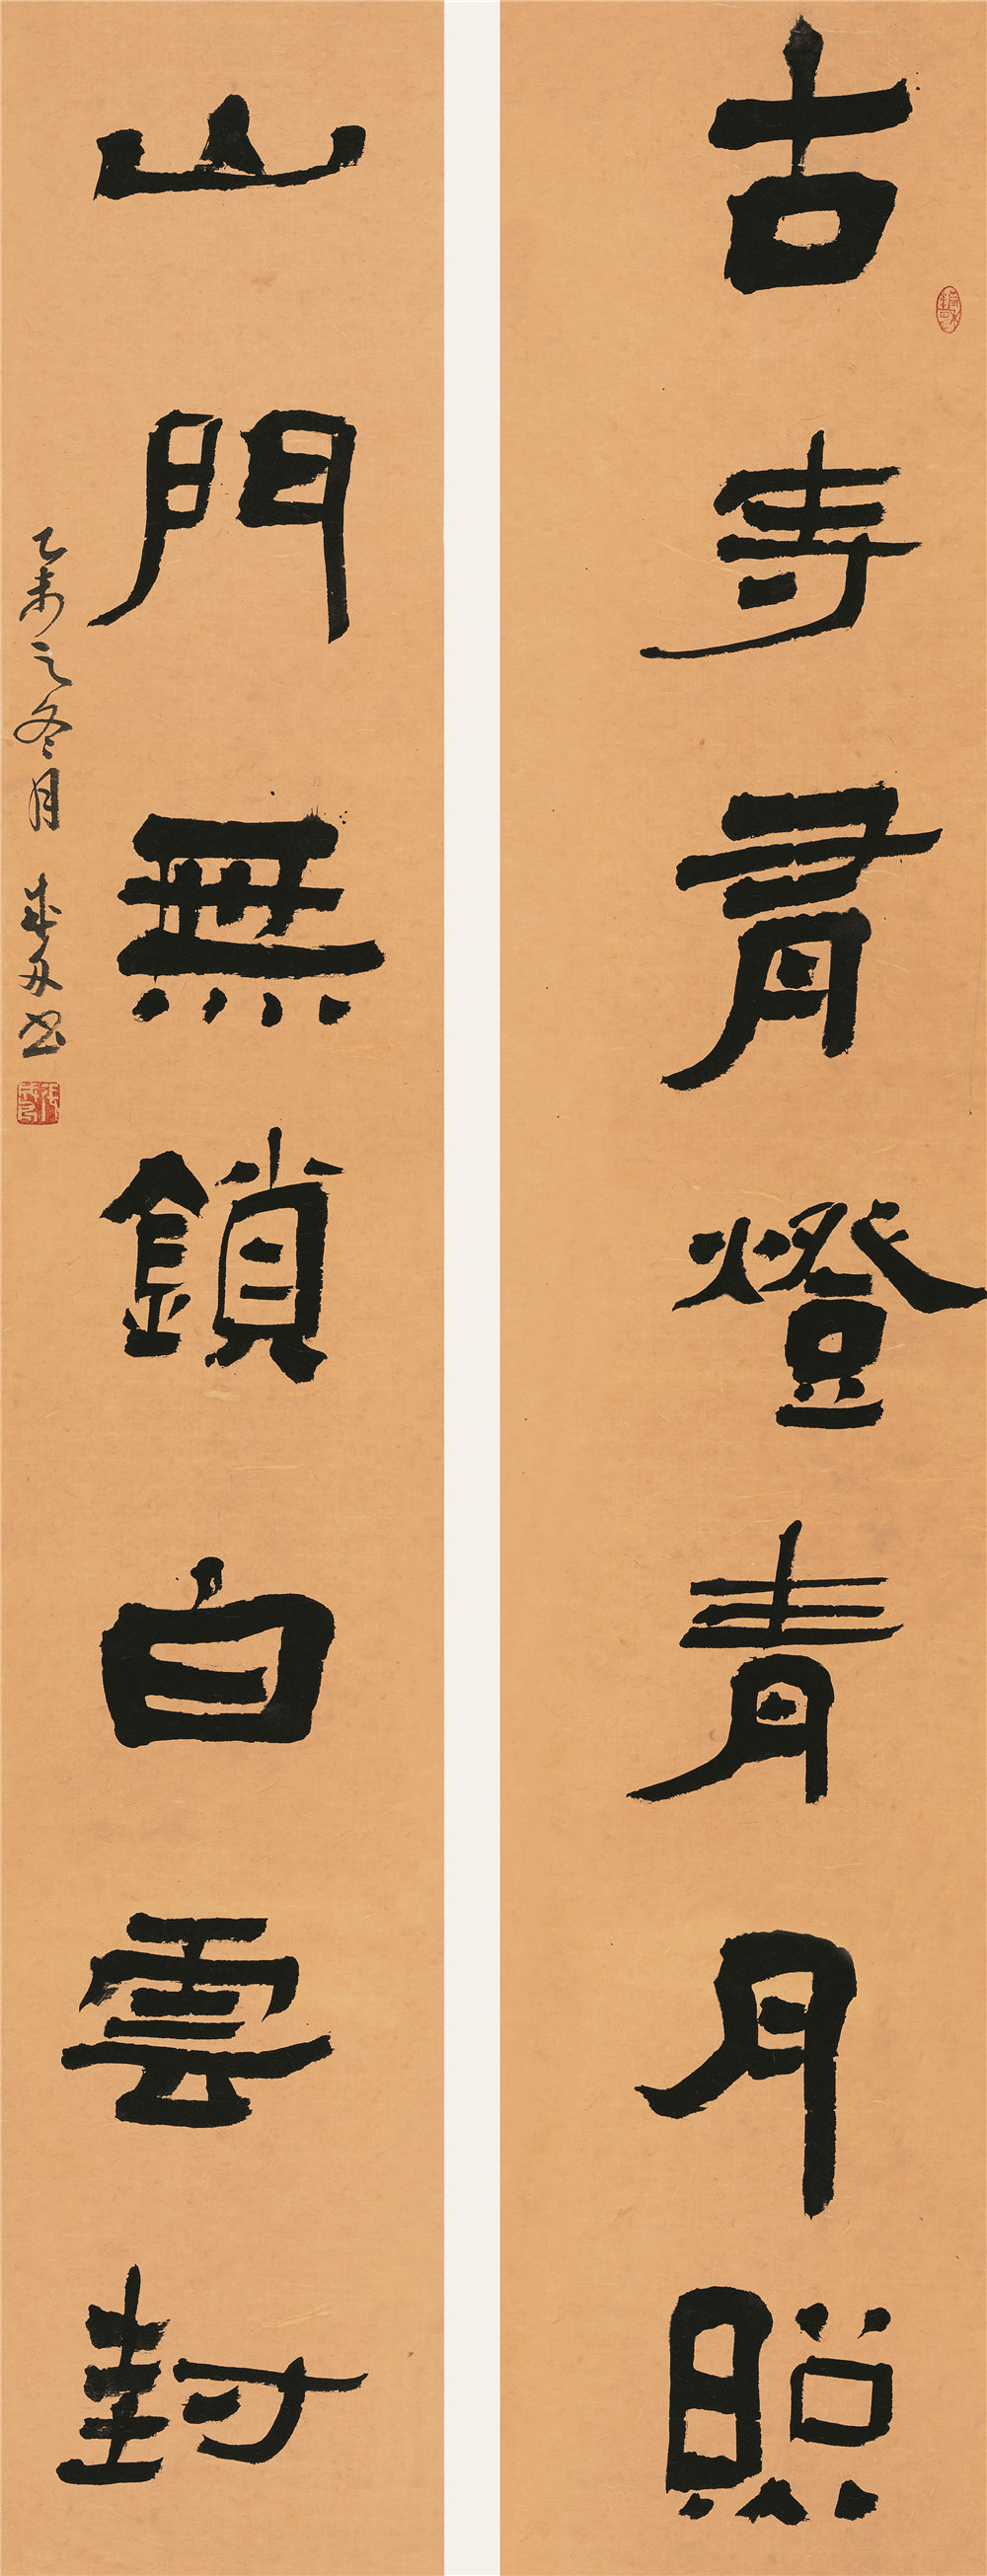 古寺有燈青月照
山門無鎖白雲封
乙未之冬月 书